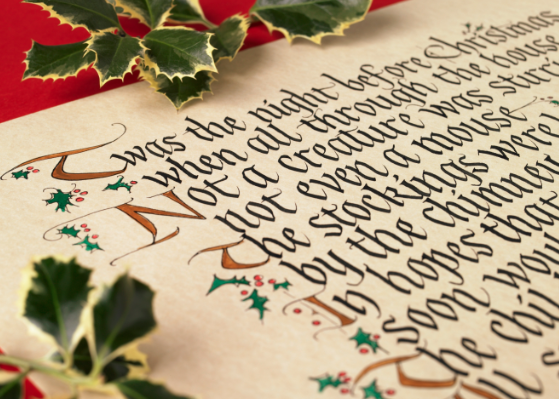 Twas the night before Christmas
when all through the house
Not a creature was stirr
not even a mouse
The stockings were h
by the chimney
In hopes that
soon wou
The chi